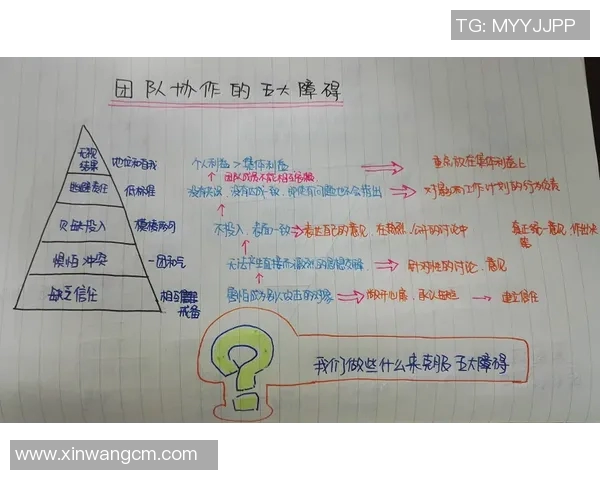 TG: MYYJJPP
团队协作的五大障碍
无视结果 地位和自我 个人利益>集体利益 重点放在集体利益上
逃避责任 低标准 没有失误、没有达成一致,即使有问题也不会指出 对影响工作计划的行为负责
欠缺投入 模棱两可 不投入、表面一致 表达自己的意见,在热烈、公开的讨论中 真正统一意见,作出决定
惧怕冲突 一团和气 无法产生直接而激烈的思想交锋 针对性的讨论、意见
缺乏信任 相互戒备 害怕成为别人攻击的对象 敞开心扉,承认缺陷 建立信任
我们做些什么来克服五大障碍
www.xinwangcm.com